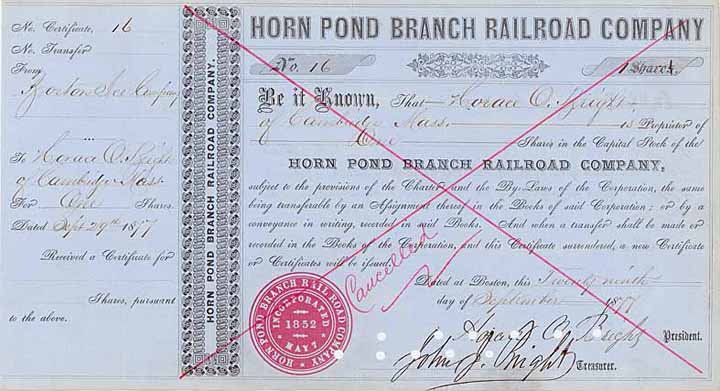 No. Certificate, 16
No. Transfer
From
Boston Ice Company
To Horace O. Bright
of Cambridge Mass.
For One Shares.
Dated Sept. 29th 1877
Received a Certificate for
Shares, pursuant
to the above.
HORN POND BRANCH RAILROAD COMPANY.
HORN POND BRANCH RAILROAD COMPANY
No. 16
1 Share
Be it Known, That Horace O. Bright
of Cambridge Mass. is Proprietor of
One Shares in the Capital Stock of the
HORN POND BRANCH RAILROAD COMPANY,
subject to the provisions of the Charter and the By-Laws of the Corporation, the same
being transferable by an Assignment thereof in the Books of said Corporation; or by a
conveyance in writing, recorded in said Books. And when a transfer shall be made or
recorded in the Books of the Corporation, and this Certificate surrendered, a new Certificate
or Certificates will be issued.
Cancelled
Dated at Boston, this Twenty ninth
day of September 1877
HORN POND BRANCH RAILROAD COMPANY
INCORPORATED
1852
MAY 7
President.
Treasurer.